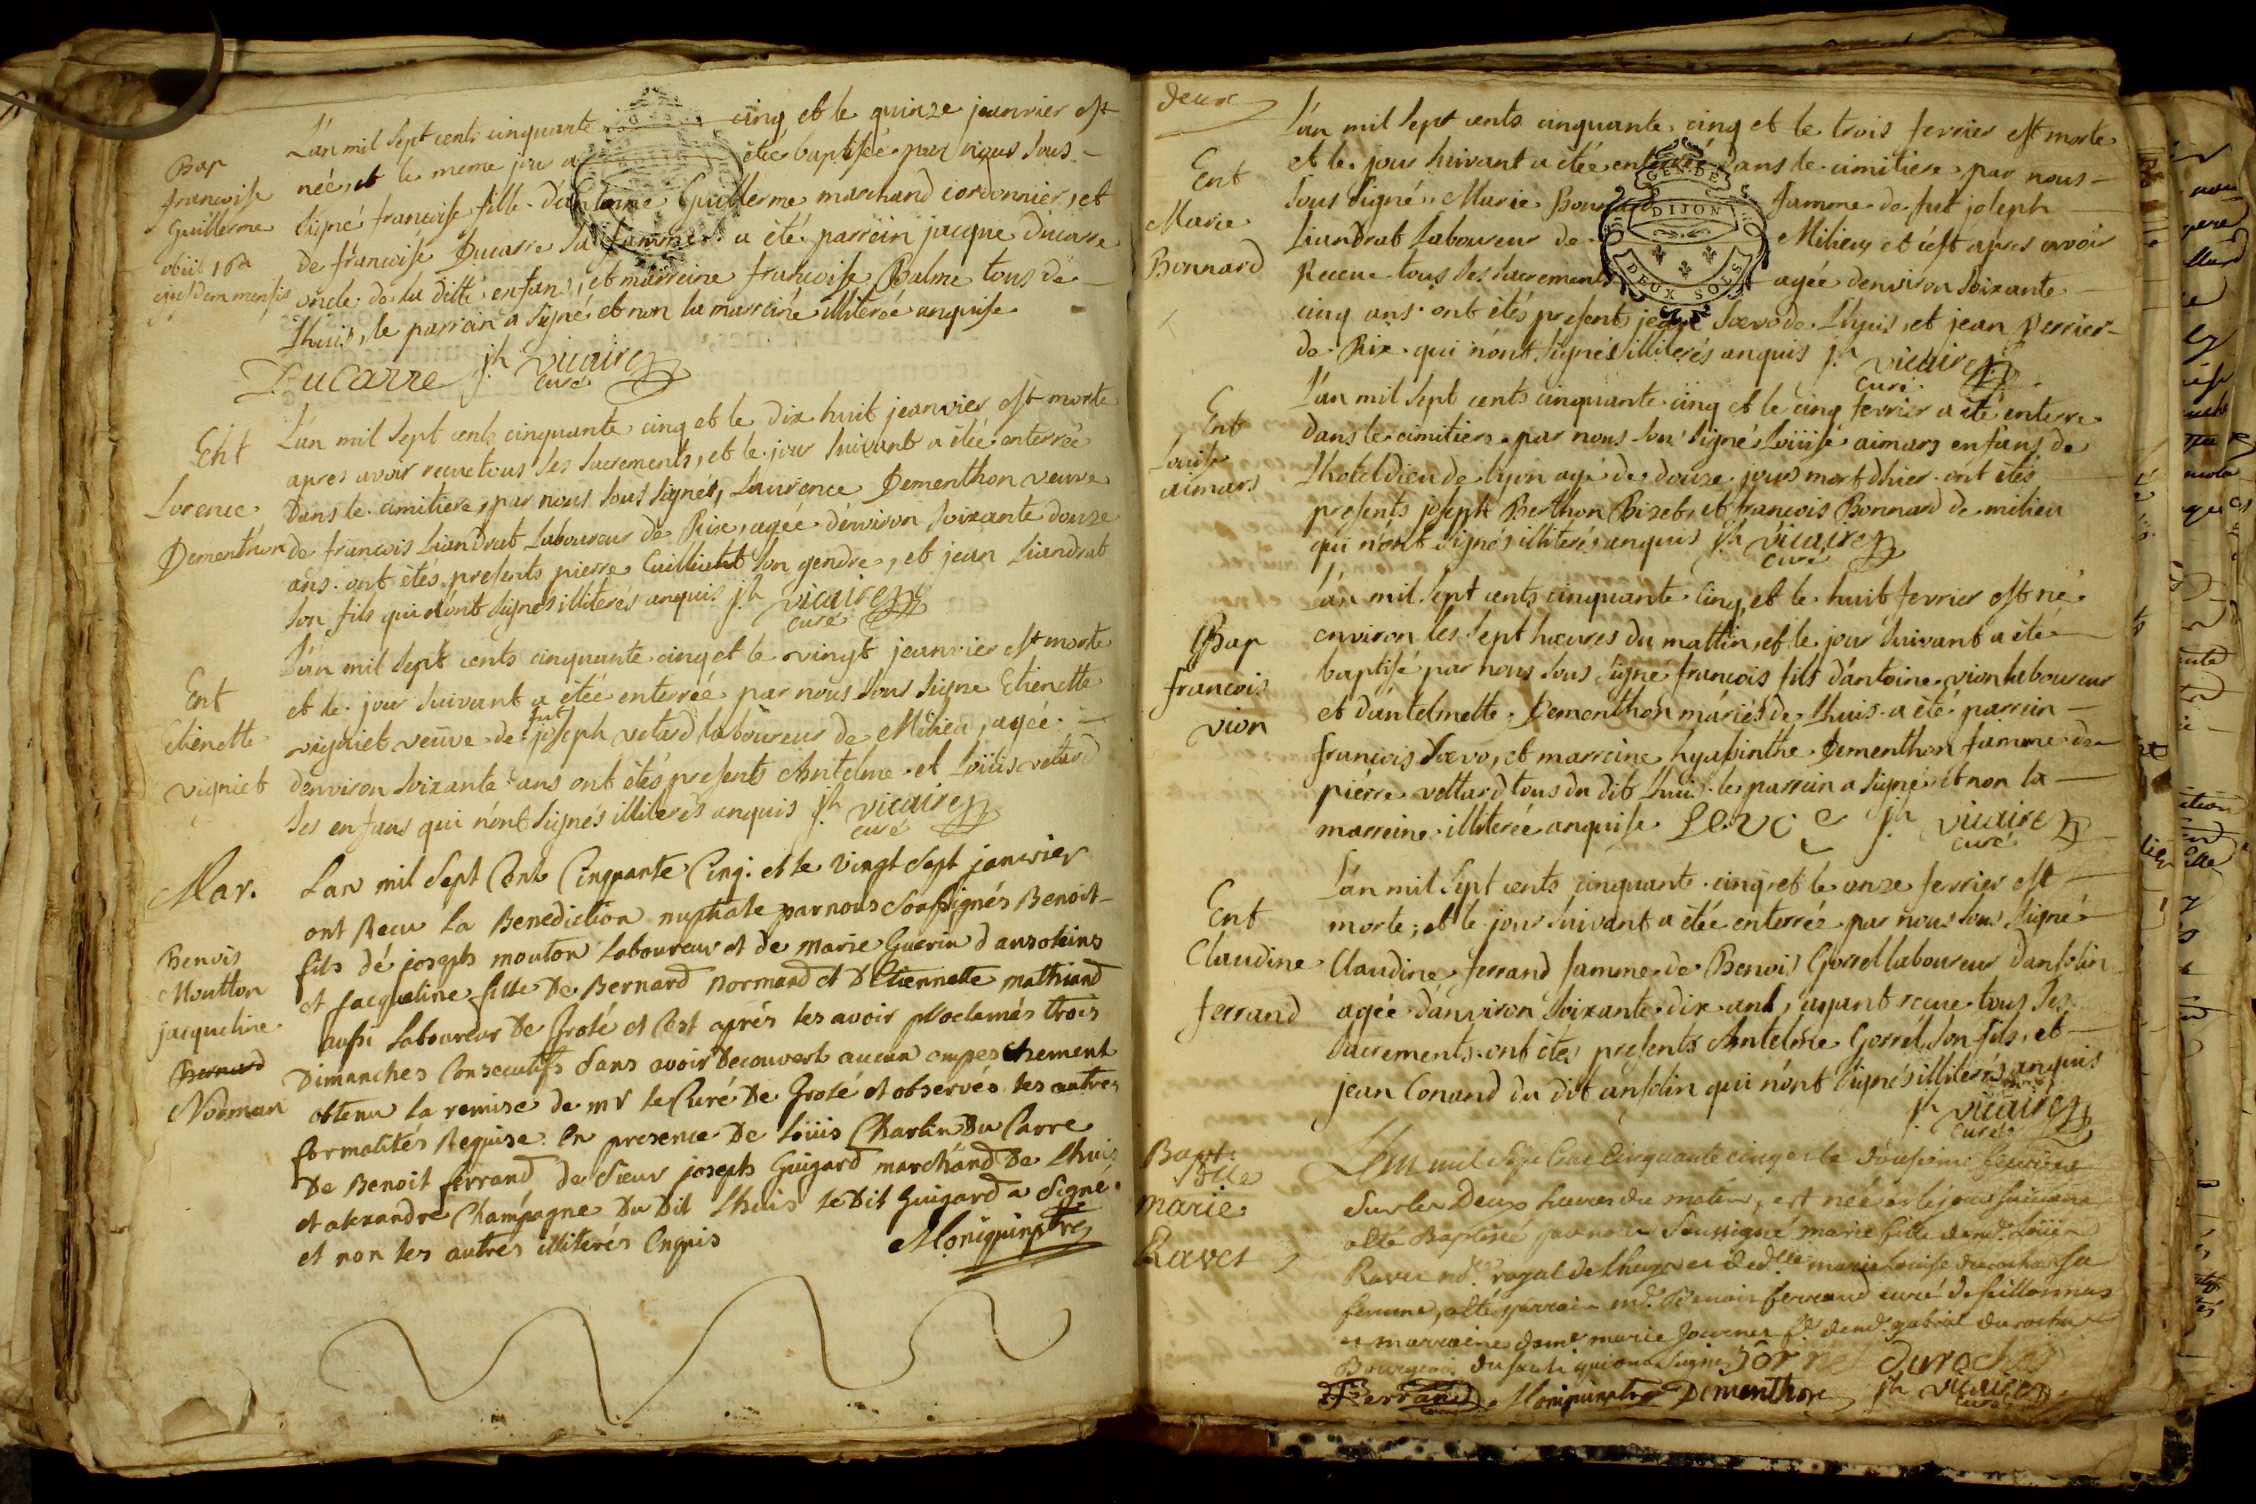 Bap
francoise
Guillerme
obiit 16a
ejusdem mensis
L'an mil sept cents cinquante cinq et le quinze jeanvier est
née, et le meme jour a étée baptisée par nous sous
signé francoise fille d'antoine Guillerme marchand cordonnier, et
de francoise Ducarre sa famme a été parrein jacque ducarre
oncle de la ditte enfans, et marreine francoise Balme tous de
Lhuis, le parrein a signé et non la marreine illiterée anquise
Ducarre jh vicaire
curé
Ent
Lorence
Dementhon
L'an mil sept cents cinquante cinq et le dix huit jeanvier est morte
apres avoir recue tous ses sacrements, et le jour suivant a étée enterrée
Dans le cimitiere, par nous sous signés, Laurence Dementhon veuve
de francois Liandrat Laboureur de Rix, agée d'environ soixante douze
ans ont étés presents pierre Cuillieret son gendre, et jean Liandrat
son fils qui n'ont signés illiterés anquis jh vicaire
curé
Ent
Etienette
vigniet
L'an mil sept cents cinquante cinq et le vingt jeanvier est morte
et le jour suivant a étée enterrée par nous sous signe Etienette
vigniet veuve de fut joseph vetard laboureur de Milieu, agée
d'environ soixante ans ont étés presents Antelme et Loüis vetard
ses enfans qui n'ont signés illiterés anquis jh vicaire
curé
Mar.
Benois
Moutton
jacqueline
Bernard
Noman
Lan mil sept Cent Cinquante Cinq et le vingt sept janvier
ont Recu la Benediction nuptiale par nous soussignés Benoit
fils de joseph mouton laboureur et de marie Guerin d ansoleins
et jacqueline fille De Bernard normand et D Etiennette mathiand
aussi laboureur De Grolé et C'est aprés les avoir proclamés trois
Dimanches Consecutifs sans avoir Decouvert aucun empeschement
obtenu la remise de mr le Curé De Grolé et observés les autres
formalités Requise En presence De Loüis Charlin Du Carre
De Benoit ferrand de sieur joseph Guigard marchand De Lhuis
et alexandre Champagne Du Dit Lhuis le Dit Guigard a signé
et non les autres illiterés Enquis Moniquin ptre
deux
Ent
Marie
Bonnard
L'an mil sept cents cinquante cinq et le trois fevrier est morte
et le jour suivant a étée enterré dans le cimitiere par nous
sous signé Marie Bonnard famme de fut joseph
Liandrat Laboureur de Milieu, et c'est apres avoir
Receue tous ses sacrements agée d'environ soixante
cinq ans ont étés presents jeane Saevo de Lhuis, et jean perrier
de Rix qui n'ont signés illiterés anquis jh vicaire
curé
GEN DE
DIJON
DEUX SOLS
Ent
Louise
aimars
L'an mil sept cents cinquante cinq et le cinq fevrier a été enterre
dans le cimitiere par nous sous signé Loüise aimars enfans de
Lhotel dieu de lyon agé de douze jours mort dhier ont étés
presents joseph Berthon Bizet, et francois Bonnard de milieu
qui n'ont signés illiterés anquis jh vicaire
curé
Bap
francois
vion
L'an mil sept cents cinquante Cinq et le huit fevrier est né
environ les sept hoeures du mattin, et le jour suivant a été
baptisé par nous sous signe francois fils d'antoine vion laboureur
et d'antelmette Dementhon mariés de Lhuis a été parrein
francois Saevo, et marreine hyassinthe Dementhon famme de
piérre vettard tous du dit Lhuis le parrein a signé et non la
marreine illiterée anquise Sevoz jh vicaire
curé
Ent
Claudine
ferrand
L'an mil sept cents cinquante cinq et le onze fevrier est
morte, et le jour suivant a étée enterrée par nous sous signé
Claudine ferrand famme de Benois Gorrel laboureur d'ansolin
agée d'anviron soixante dix ans, ayant recue tous ses
sacrements ont étés presents Antelme Gorrel son fils, et
jean Conand du dit ansolin qui n'ont signés illiterés anquis
jh vicaire
curé
Bapt.
Dlle
marie
Ravet
L'an mil sept Cent Cinquante cinq et le douzieme fevrier
sur les Deux heures du matin, est née et le jour suivant
a été Baptisée par nous soussigné marie fille de mr Loüis
Ravet nre royal de Lhuys et de dlle marie Louise durochat sa
femme, a été parrain mr Benoit ferrand curé de seillonnas
et marraine dame marie Jorner fe de mr gabriel durochat
Bourgeois du sault qui ont signé Jorner durochat
Ferrand Moniquin ptre Dementhon jh vicaire
curé